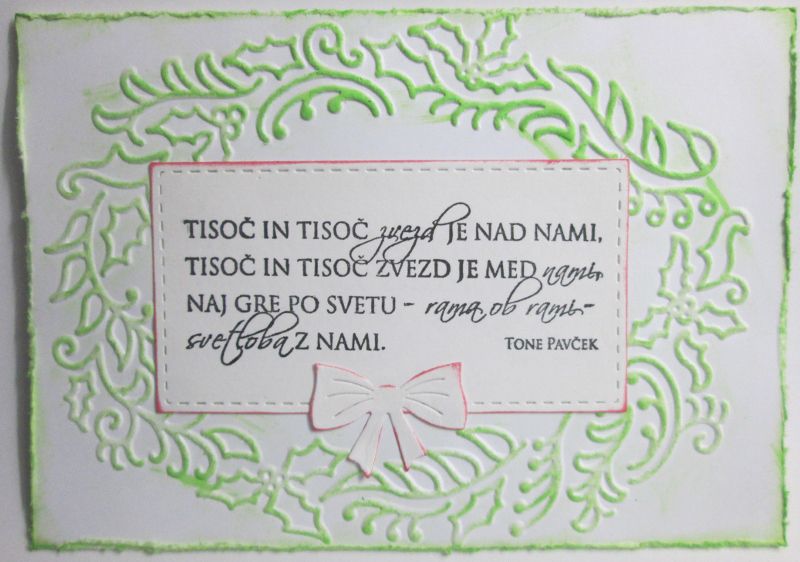 TISOČ IN TISOČ zvezd JE NAD NAMI,
TISOČ IN TISOČ ZVEZD JE MED nami,
NAJ GRE PO SVETU - rama ob rami -
svetloba Z NAMI.
TONE PAVČEK